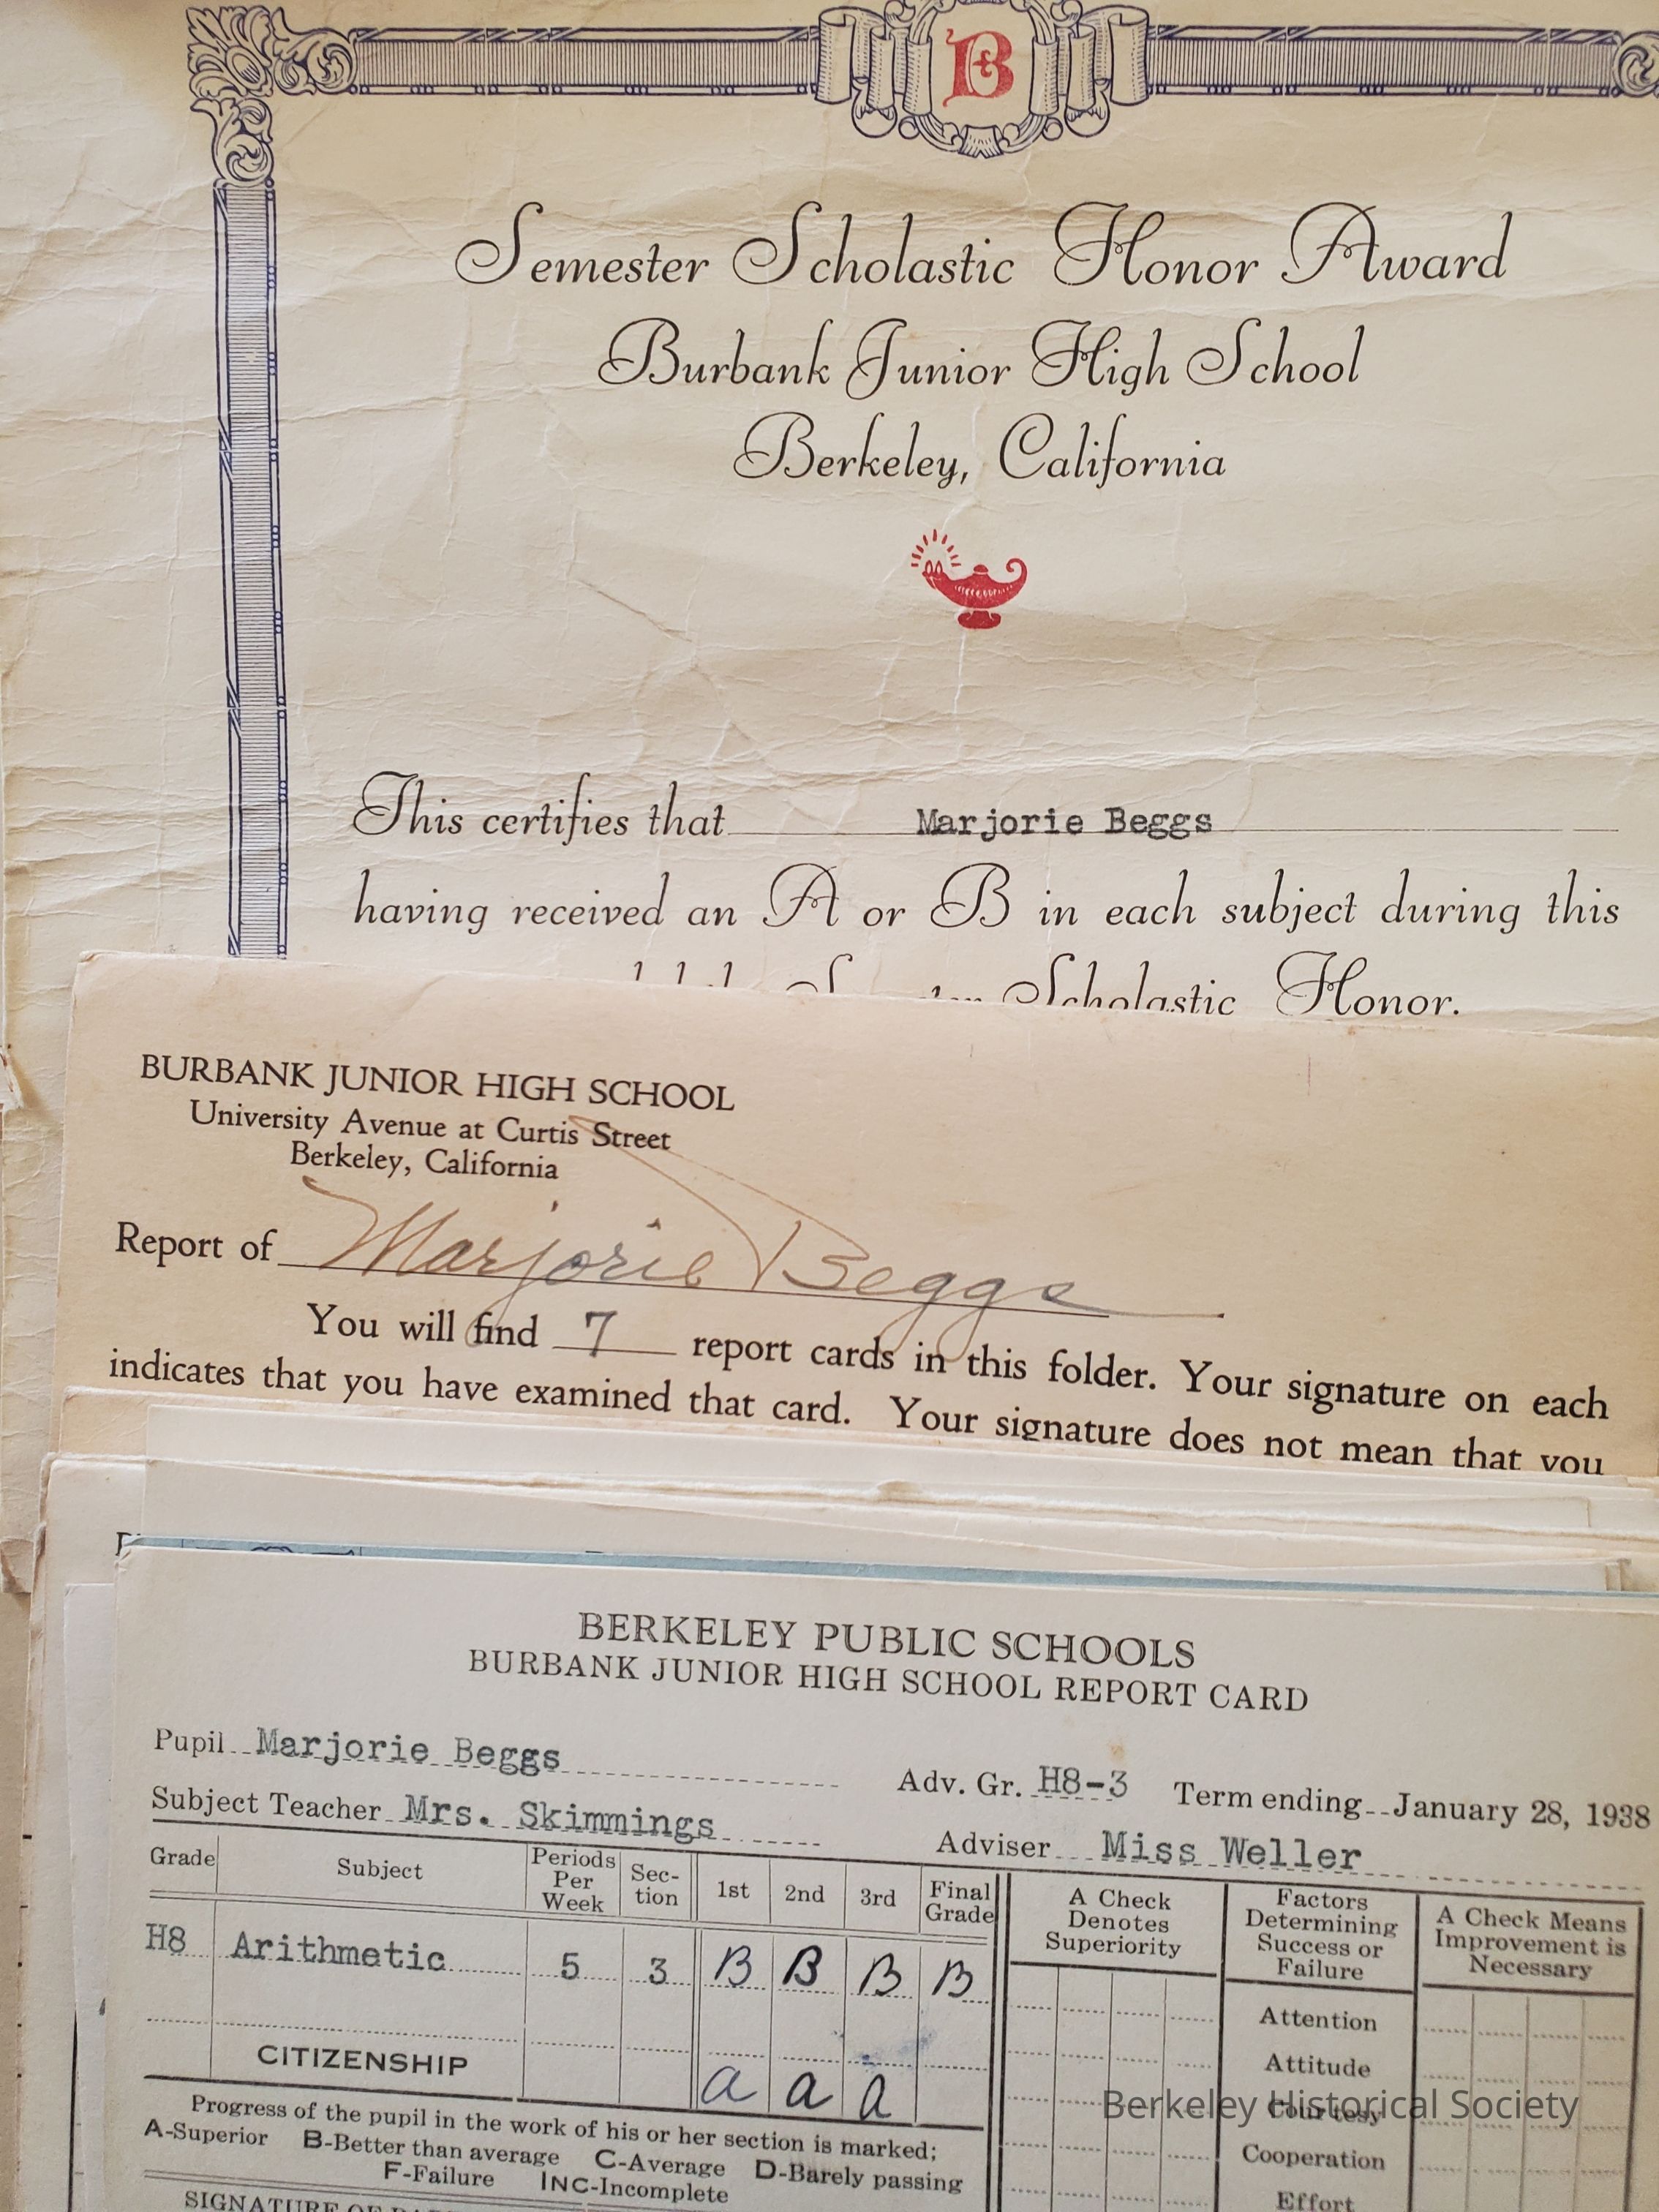 B
Semester Scholastic Honor Award
Burbank Junior High School
Berkeley, California
This certifies that Marjorie Beggs
having received an A or B in each subject during this
Scholastic Honor.
BURBANK JUNIOR HIGH SCHOOL
University Avenue at Curtis Street
Berkeley, California
Report of Marjorie Beggs
You will find 7 report cards in this folder. Your signature on each
indicates that you have examined that card. Your signature does not mean that you
BERKELEY PUBLIC SCHOOLS
BURBANK JUNIOR HIGH SCHOOL REPORT CARD
Pupil Marjorie Beggs Adv. Gr. H8-3 Term ending January 28, 1938
Subject Teacher Mrs. Skimmings Adviser Miss Weller
Grade Subject Periods Per Week Sec-tion 1st 2nd 3rd Final Grade A Check Denotes Superiority Factors Determining Success or Failure A Check Means Improvement is Necessary
H8 Arithmetic 5 3 B B B B
Attention
CITIZENSHIP a a a
Attitude
Courtesy
Cooperation
Effort
Progress of the pupil in the work of his or her section is marked;
A-Superior B-Better than average C-Average D-Barely passing
F-Failure INC-Incomplete
SIGNATURE OF
Berkeley Historical Society